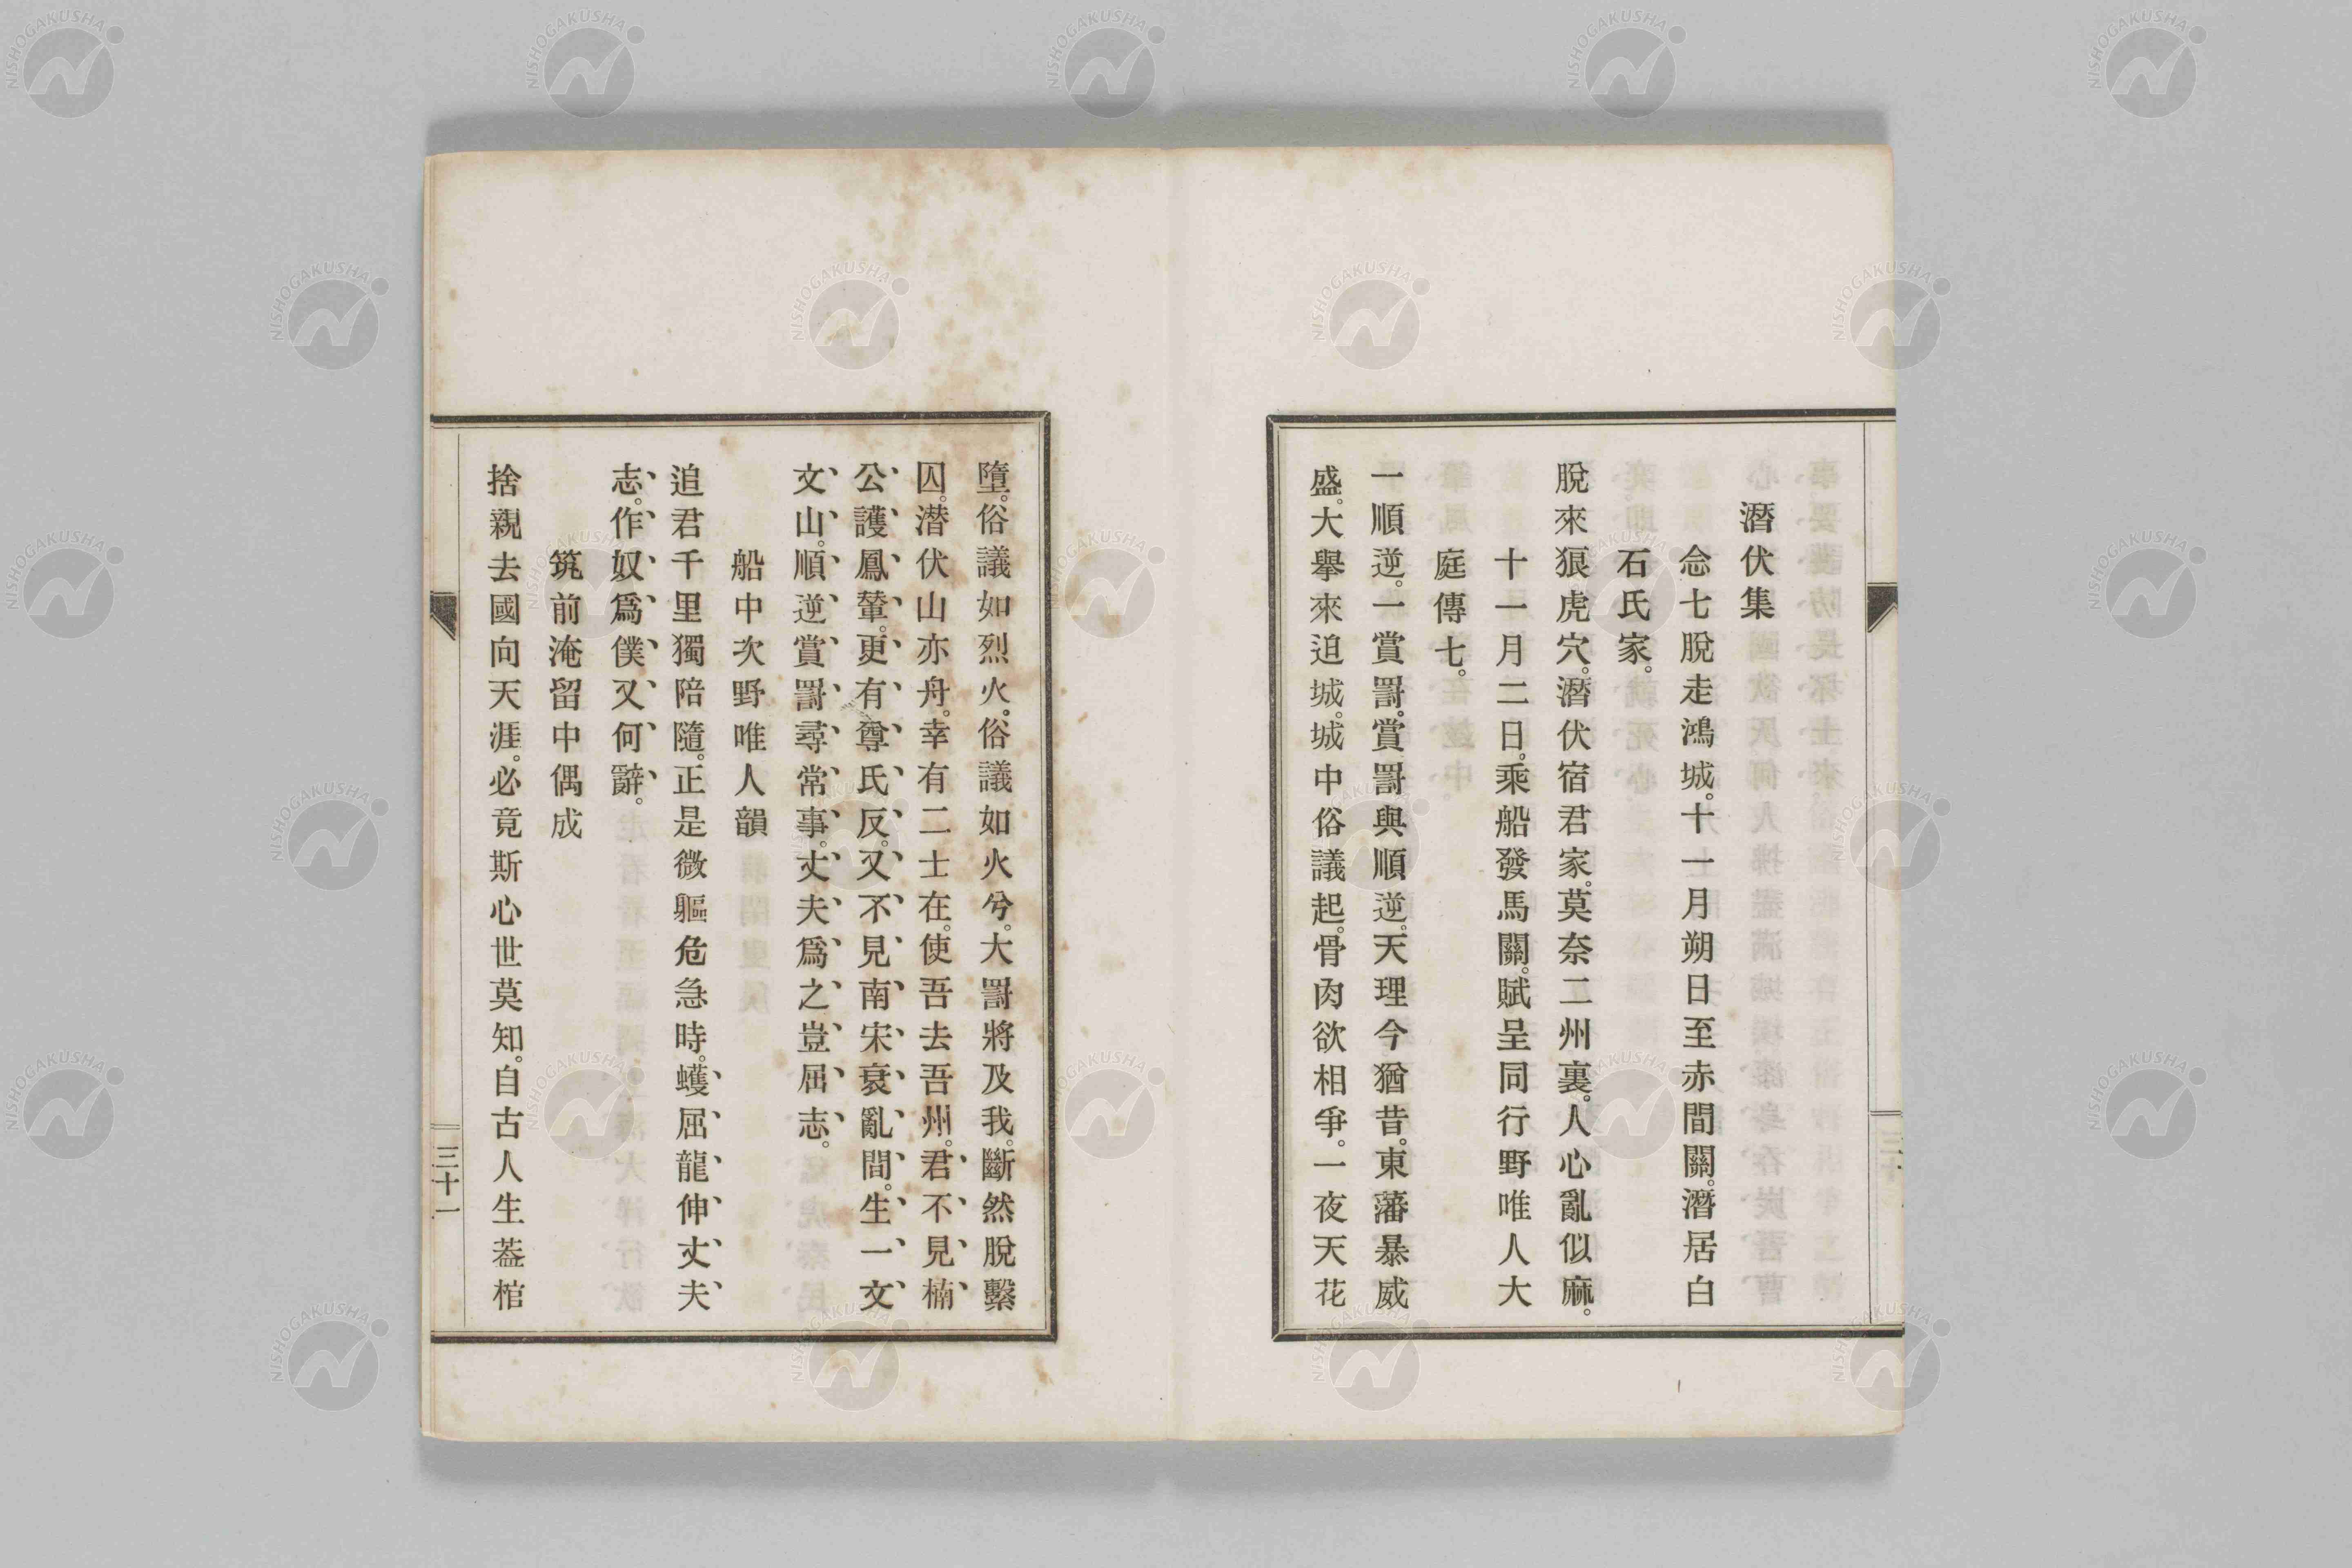 潛伏集
念七脫走鴻城。十一月朔日至赤間關。潛居白
石氏家。
脫來狼虎穴。潛伏宿君家。莫奈二州裏。人心亂似麻。
十一月二日。乘船發馬關。賦呈同行野唯人大
庭傳七。
一順逆。一賞罰。賞罰與順逆。天理今猶昔。東藩暴威
盛。大擧來迫城。城中俗議起。骨肉欲相爭。一夜天花
墮。俗議如烈火。俗議如火兮。大罰將及我。斷然脫繫
囚。潜伏山亦舟。幸有二士在。使吾去吾州。君不見楠
公護鳳輦。更有尊氏反。又不見南宋衰亂間。生一文
文山。順逆賞罰尋常事。丈夫爲之豈屈志。
船中次野唯人韻
追君千里獨陪隨。正是微軀危急時。蠖屈龍伸丈夫
志。作奴爲僕又何辭。
筑前淹留中偶成
捨親去國向天涯。必竟斯心世莫知。自古人生葢棺
三十一
NISHOGAKUSHA